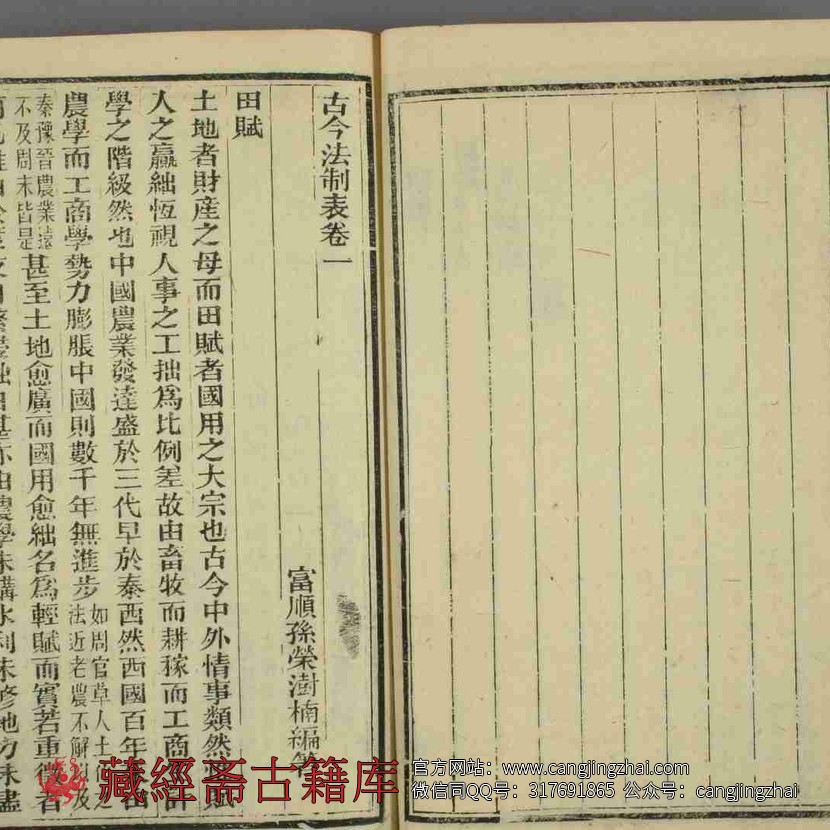 古今法制表卷一
富順孫榮澍楠編
田賦
土地者財產之母而田賦者國用之大宗也古今中外情事類然賦
人之贏絀恆視人事之工拙為比例差故由畜牧而耕稼而工商
學之階級然也中國農業發達盛於三代早於泰西然西國百年
農學而工商學勢力膨脹中國則數千年無進步如周官草人土
法近老農不解
秦豫晉農業遠
不及周末皆是甚至土地愈廣而國用愈絀名為輕賦而實若重徵者
農學未講水利未修地力未盡
藏經斋古籍库
官方网站:www.cangjingzhai.com
微信同QQ号:317691865 公众号:cangjingzhai